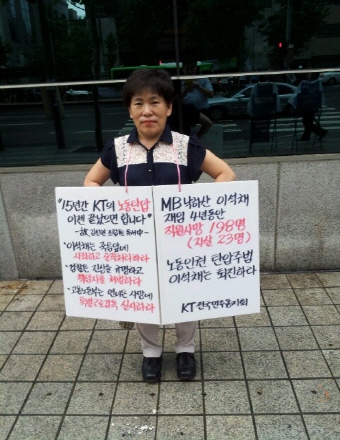 "15년간 KT의 노동탄압
이젠 끝났으면 합니다"
-故 김성현 조합원 유서中-
•이석채는 죽음앞에
사죄하고 순직처리하라
•검찰은 진실을 규명하고
책임자를 처벌하라
•고용노동부는 연이은 사망에
특별근로감독 실시하라
MB낙하산 이석채
재임 4년동안
직원사망 198명
(자살 23명)
노동인권 탄압주범
이석채는 퇴진하라
KT 전국민주동지회